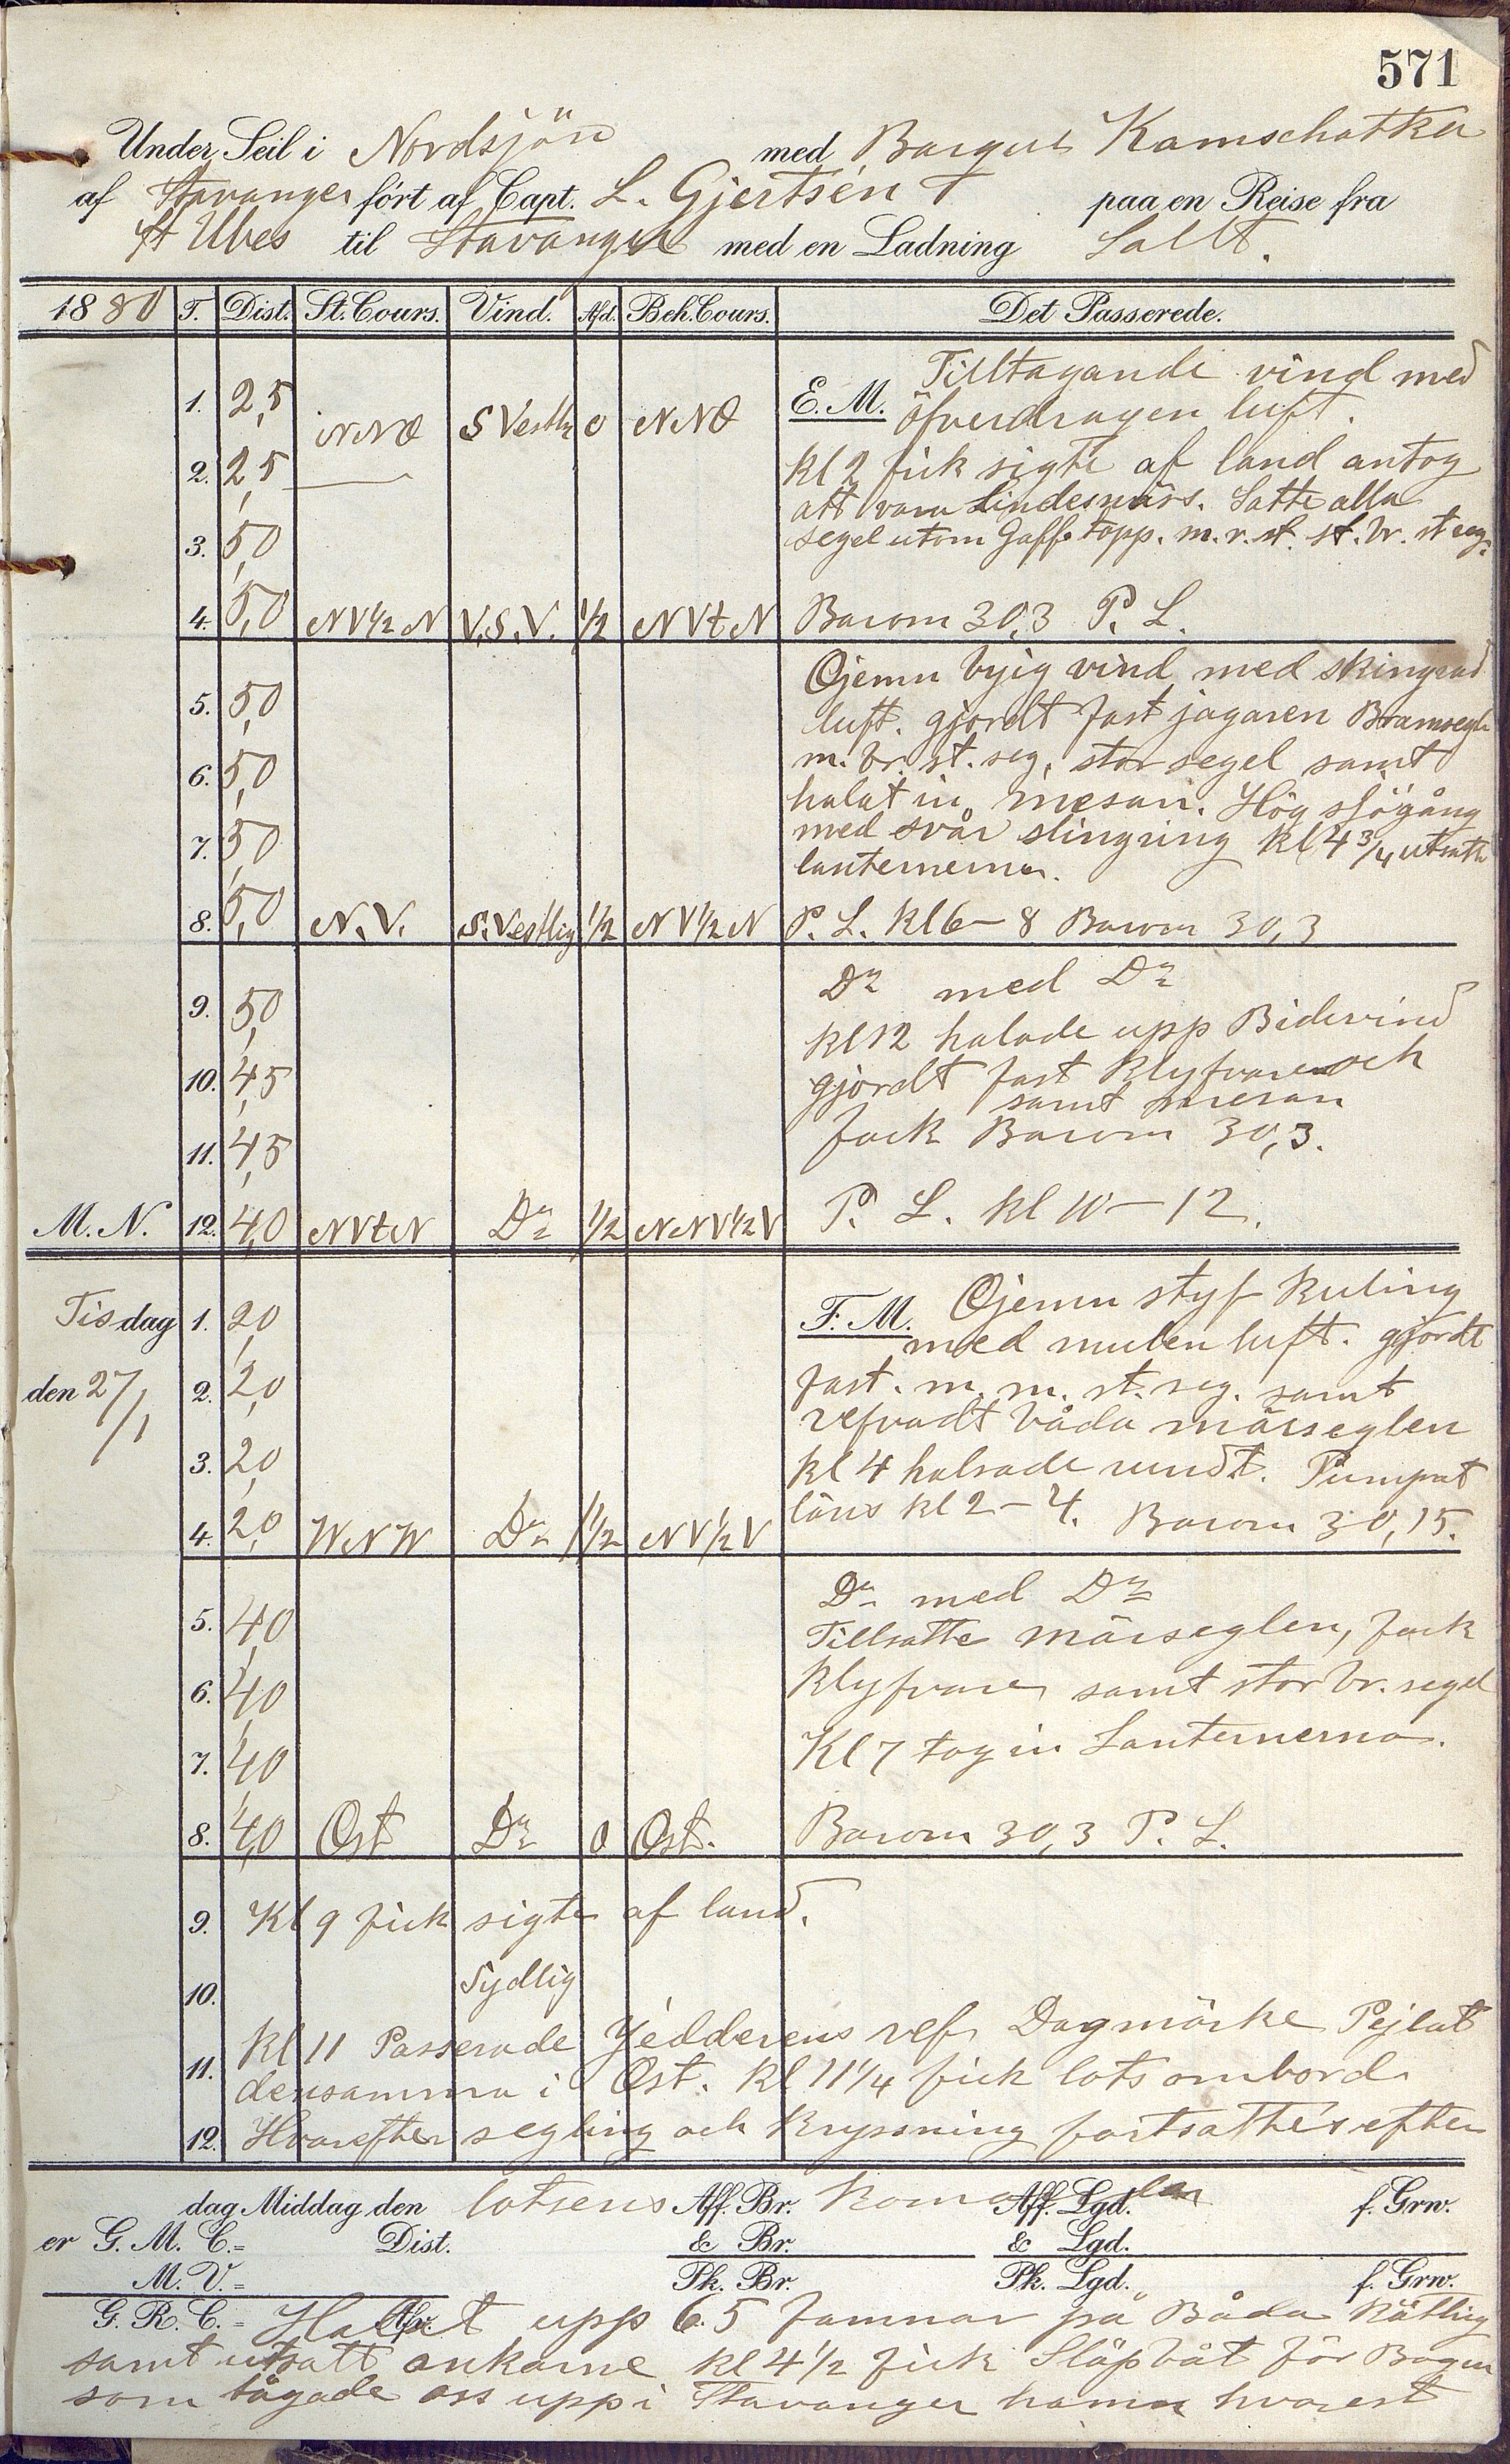 571
Under Seil i Nordsjön med Barque Kamschatka
af Stavanger fört af Capt. L. Gjertsén paa en Reise fra
St Ubes til Stavanger med en Ladning Sallt.
1880 T. Dist. St. Cours. Vind. Afd. Beh. Cours. Det Passerede.
E. M. Tilltagande vind med
1. 2,5 NNO S Vestlig 0 NNO öfverdragen luft.
2. 2,5 kl 2 fick sigte af land antog
att vara Lindesnäs. Satte alla
3. 5,0 segel utom Gaffe topp. m. r. st. st. br. st seg.
4. 5,0 NV½N V.S.V. ½ NVtN Barom 30,3 P. L.
Ojemn byig vind med skingrad
5. 5,0 luft. gjordt fast jagaren Bramsegle
6. 5,0 m. br. st. seg, stor segel samt
halat in mesan. Hög sjögång
7. 5,0 med svår slingring kl 4¾ utsatte
lanternerna.
8. 5,0 N.V. S.Vestlig ½ NV½N P. L. kl 6 - 8 Barom 30,3
9. 5,0 Do med Do
kl 12 halade upp Bidevind
10. 4,5 gjordt fast klyfvaren och
samt mesan
11. 4,5 fock Barom 30,3.
M. N. 12. 4,0 NVtN Do ½ NNV½V P. L. kl 10 - 12.
Tisdag 1. 2,0 F. M. Ojemn styf kuling
med mulen luft. gjordt
den 27/1 2. 2,0 fast. m. m. st. seg. samt
refvadt båda märseglen
3. 2,0 kl 4 halsade rundt. Pumpat
4. 2,0 WNW Do 1½ NV½V läns kl 2 - 4. Barom 30,15.
Do med Do
5. 4,0 Tillsatte märseglen, fock
6. 4,0 klyfvaren samt stor br. segel
7. 4,0 Kl 7 tog in Lanternerna.
8. 4,0 Ost Do 0 Ost. Barom 30,3 P. L.
9. Kl 9 fick sigte af land.
10. Sydlig
11. kl 11 Passerade Jedderens ref Dagmärke Pejlat
densamma i Ost. kl 11¼ fick lots ombord
12. Hvarefter segling och kryssning fortsattes efter
dag Middag den lotsens Aff. Br. Aff. Lgd. f. Grw.
er G. M. C.= Dist. & Br. & Lgd.
M. V.= Pk. Br. Pk. Lgd. f. Grw.
G. R. C.= Afv. Halat upp 65 famnar på Båda Kätting
samt utsatt ankarne kl 4½ fick Släpbåt för Bogen
som bågade oss upp i Stavanger hamn hvarest